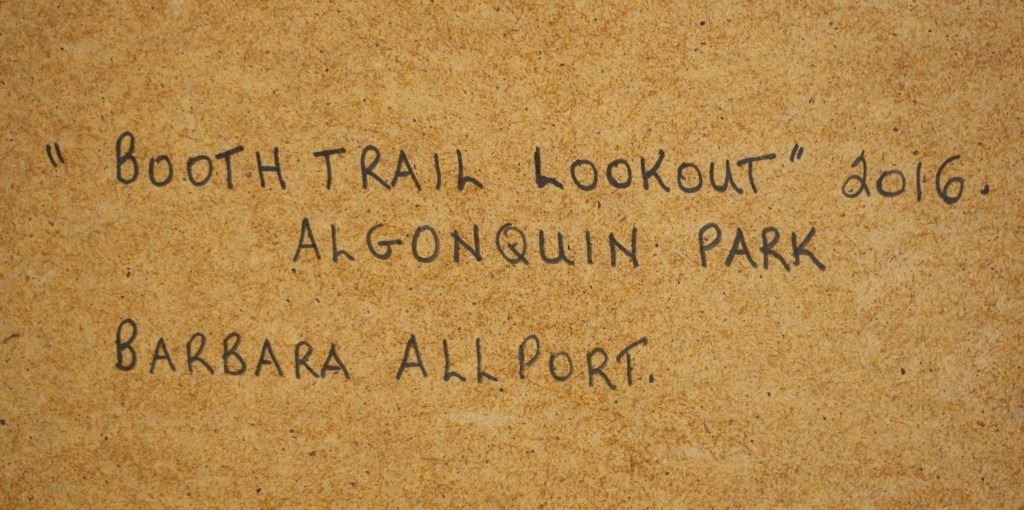 "BOOTH TRAIL LOOKOUT" 2016.
ALGONQUIN PARK
BARBARA ALLPORT.